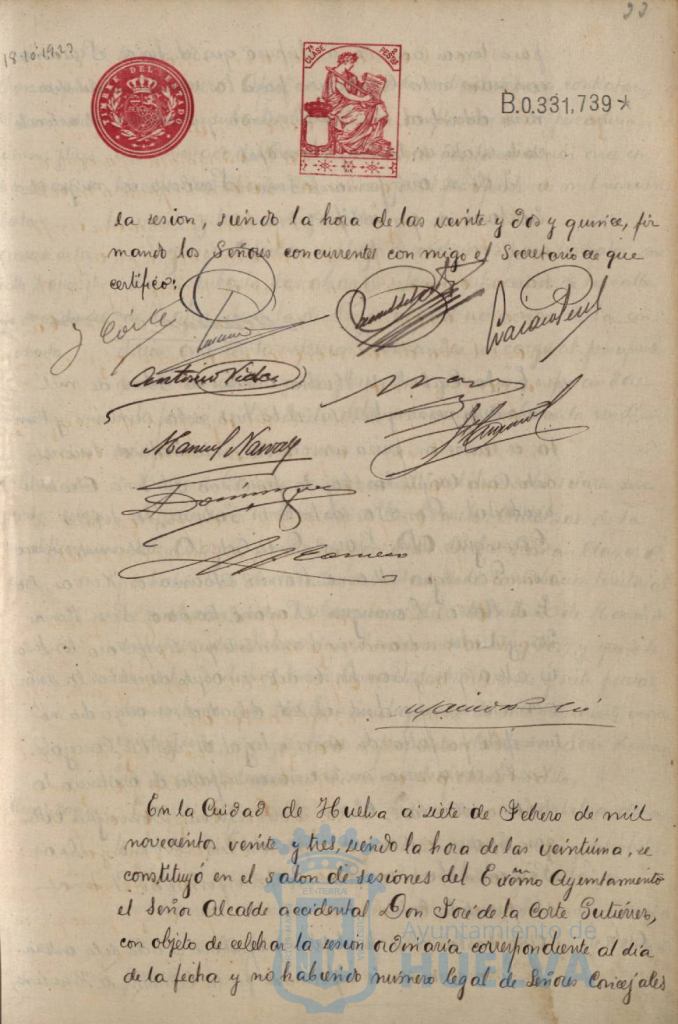 33
18-10-1923
TIMBRE DEL ESTADO
7ª CLASE 2 PESTAS
B.0.331,739*
la sesion, siendo la hora de las veinte y dos y quince, fir
mando los Señores concurrentes con migo el Secretario de que
certifico:
J Córte
Antonio Vidal
Manuel Navas
Domínguez
En la Ciudad de Huelva a siete de Febrero de mil
novecientos veinte y tres, siendo la hora de las veintiuna, se
constituyó en el salon de sesiones del Excmo Ayuntamiento
el Señor Alcalde accidental Don José de la Corte Gutiérrez,
con objeto de celebrar la sesion ordinaria correspondiente al dia
de la fecha y no habiendo número legal de Señores Concejales
Ayuntamiento de
HUELVA